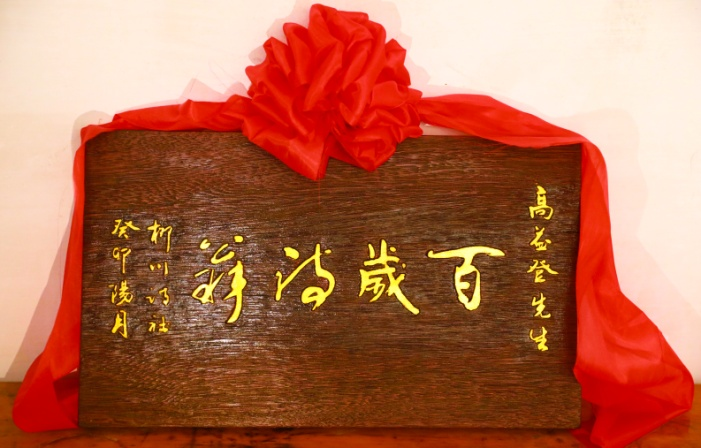 高益登先生
百歲詩翁
柳川诗社
癸卯陽月